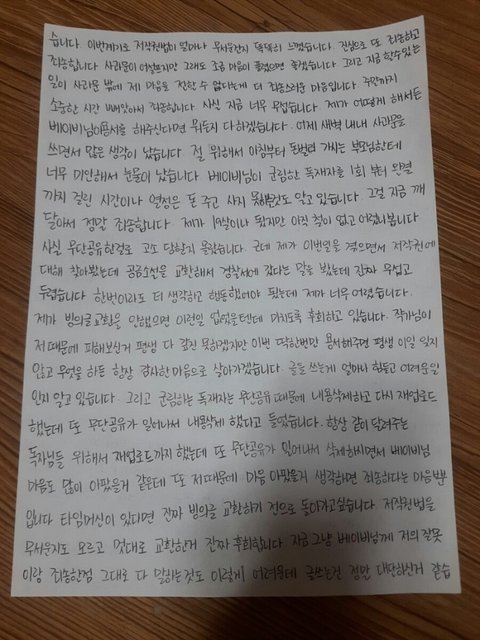 습니다. 이번계기로 저작권법이 얼마나 무서운건지 똑똑히 느꼈습니다. 진심으로 또 죄송하고
죄송합니다. 사과문이 어설프지만 그래도 조금 마음이 풀렸으면 좋겠습니다. 그리고 지금 할수있는
일이 사과문 밖에 제 마음을 전할 수 없다는게 더 죄송스러운 마음입니다. 주말까지
소중한 시간 빼앗아서 죄송합니다. 사실 지금 너무 무섭습니다. 제가 어떻게 해서든
베이비님이용서를 해주신다면 뭐든지 다하겠습니다. 어제 새벽 내내 사과문을
쓰면서 많은 생각이 났습니다. 절 위해서 아침부터 돈벌러 가시는 부모님한테
너무 미안해서 눈물이 났습니다. 베이비님이 군림한 독재자를 1회 부터 완결
까지 걸린 시간이나 열정은 돈 주고 사지 못하는것도 알고 있습니다. 그걸 지금 깨
달아서 정말 죄송합니다. 제가 19살이나 됬지만 아직 철이 없고 어렸나봅니다
사실 무단공유한걸로 고소 당할지 몰랐습니다. 근데 제가 이번일을 겪으면서 저작권에
대해 찾아봤는데 공금소설을 교환해서 경찰서에 갔다는 말을 봤는데 진짜 무섭고
두렵습니다. 한번이라도 더 생각하고 행동했어야 됬는데 제가 너무 어렸습니다.
제가 빙의글교환을 안했으면 이런일 없었을텐데 미치도록 후회하고 있습니다. 작가님이
저 때문에 피해보신거 평생 다 갚진 못하겠지만 이번 딱한번만 용서해주면 평생 이일 잊지
않고 무엇을 하든 항상 감사한마음으로 살아가겠습니다. 글을 쓰는게 얼마나 힘들고 어려운일
인지 알고 있습니다. 그리고 군림하는 독재자는 무단공유때문에 내용삭제하고 다시 재업로드
했는데 또 무단공유가 일어나서 내용삭제 했다고 들었습니다. 항상 같이 달려주는
독자님들 위해서 재업로드까지 했는데 또 무단공유가 일어나서 삭제하시면서 베이비님
마음도 많이 아팠을거 같은데 또 저때문에 마음 아팠을거 생각하면 죄송하다는 마음뿐
입니다. 타임머신이 있다면 진짜 빙의글 교환하기 전으로 돌아가고싶습니다. 저작권법을
무서운지도 모르고 멋대로 교환한거 진짜 후회합니다. 지금 그냥 베이비님께 저의 잘못
이랑 죄송한점 그대로 다 말하는것도 이렇게 어려운데 글쓰는건 정말 대단하신거 같습